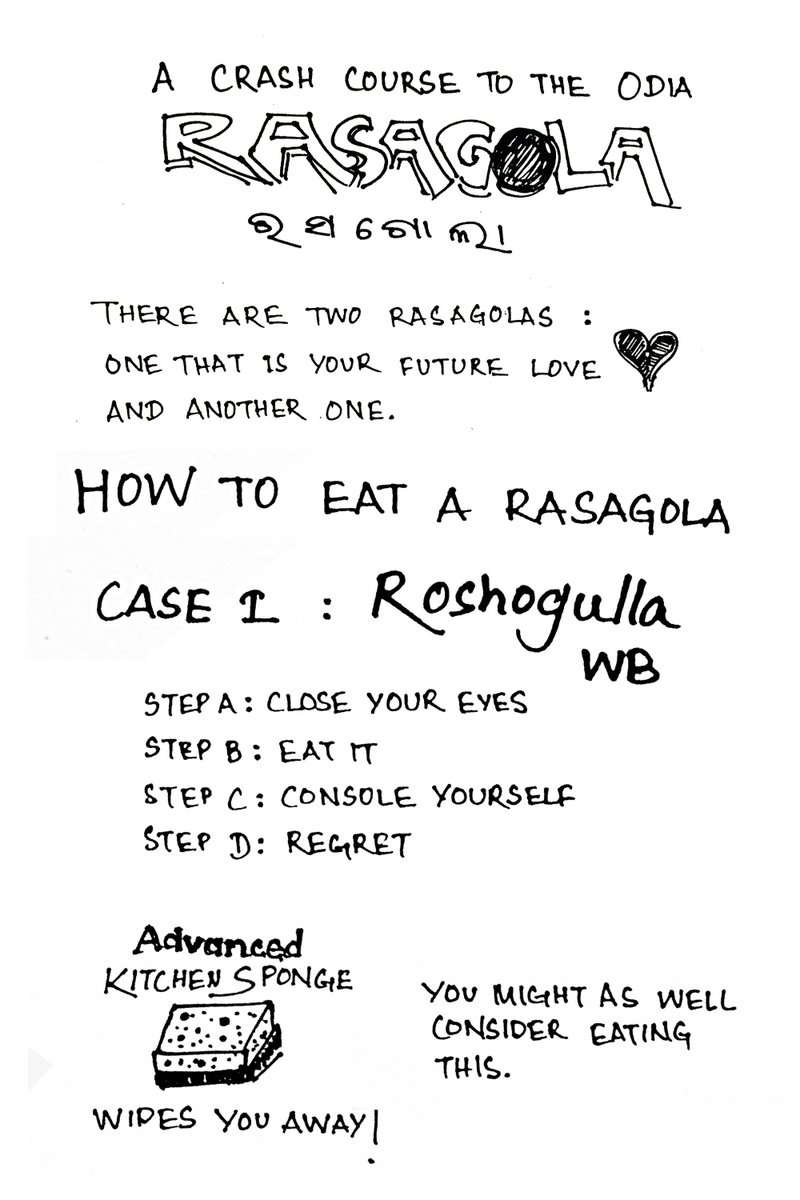 A CRASH COURSE TO THE ODIA
RASAGOLA
ରସଗୋଲା
THERE ARE TWO RASAGOLAS :
ONE THAT IS YOUR FUTURE LOVE
AND ANOTHER ONE.
HOW TO EAT A RASAGOLA
CASE I : Roshogulla
WB
STEP A: CLOSE YOUR EYES
STEP B: EAT IT
STEP C: CONSOLE YOURSELF
STEP D: REGRET
Advanced
KITCHEN SPONGE
WIPES YOU AWAY!
YOU MIGHT AS WELL
CONSIDER EATING
THIS.